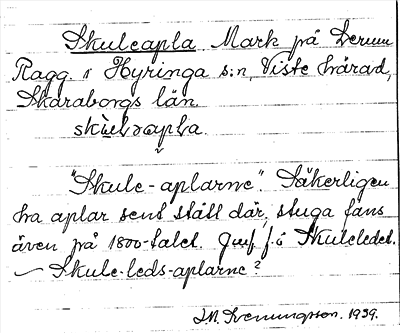 Skuleapla Mark på
Ragg. i Hyringa s:n, Viste härad,
Skaraborgs län.
"Skule-aplarne". Säkerligen
ha aplar sent stått där, stuga fans
även på 1800-talet. Jmf f.ö Skuleledet.
– Skule-leds-aplarne?
1939.